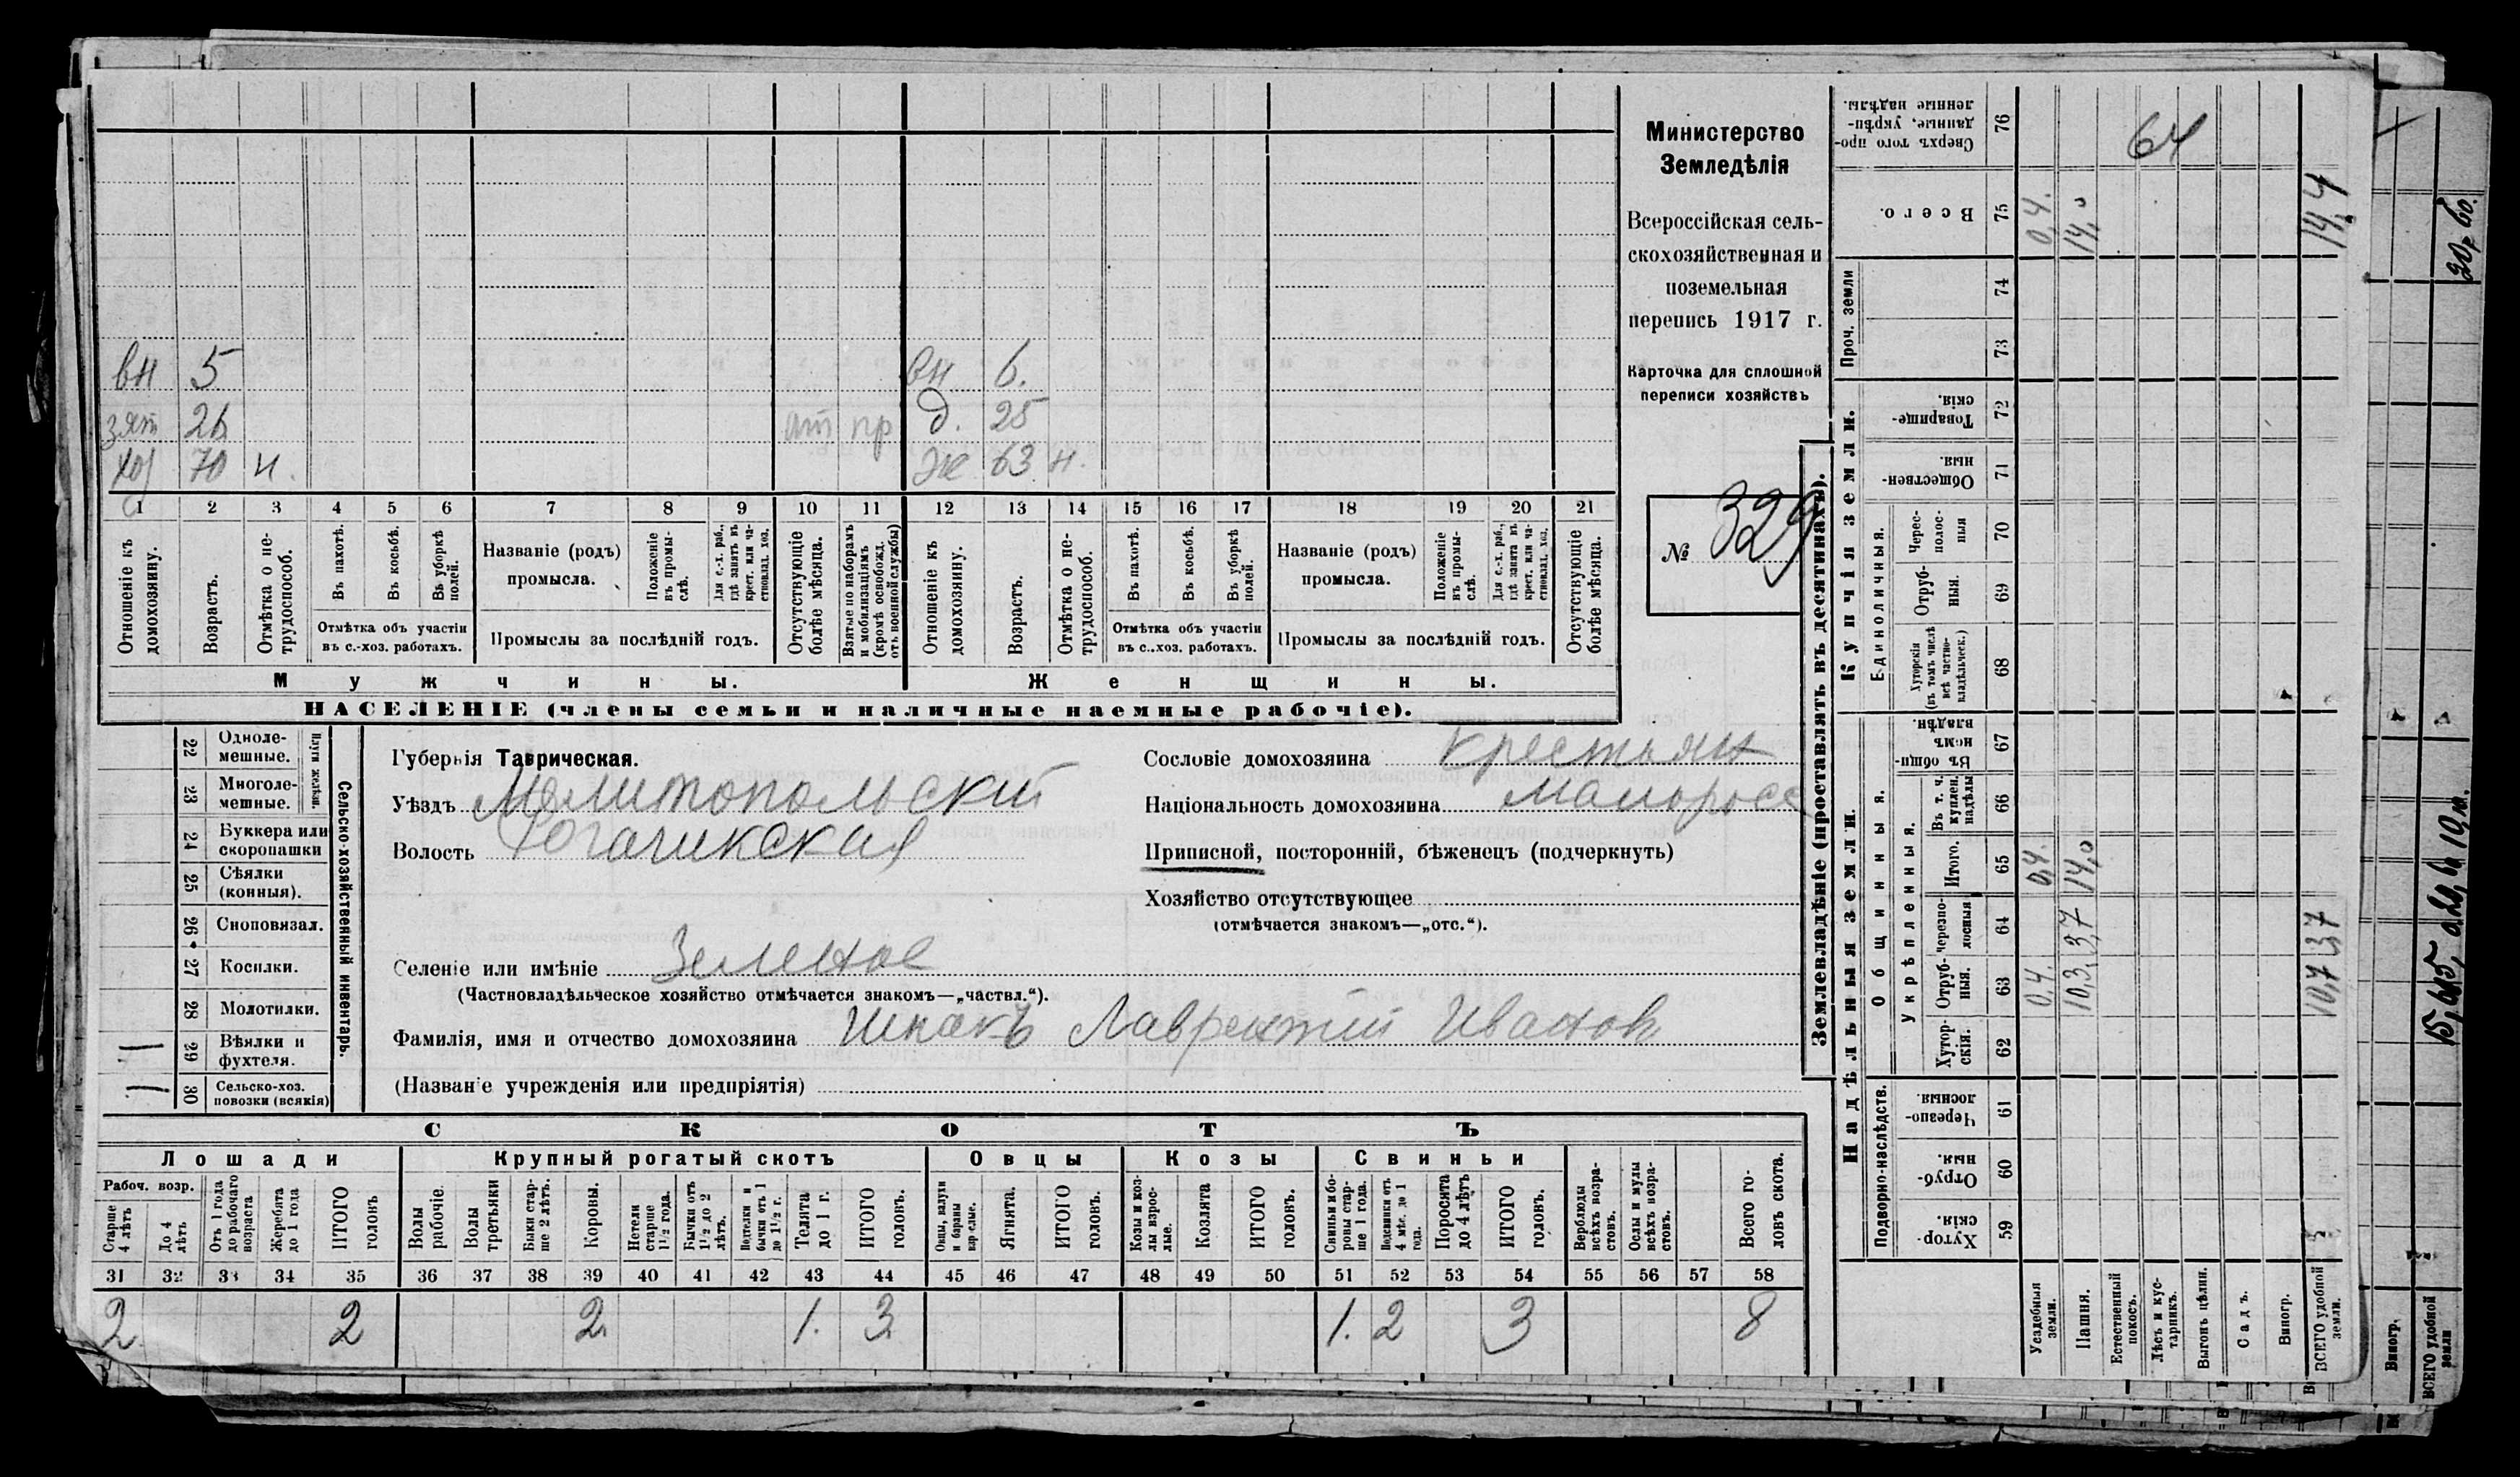 Министерство
Земледѣлія
Всероссійская сель-
скохозяйственная и
поземельная
перепись 1917 г.
Карточка для сплошной
переписи хозяйствъ
№ 329
вн 5 вн 6.
зят 26 от пр д. 25
хоз 70 н. ж 63 н.
1 2 3 4 5 6 7 8 9 10 11 12 13 14 15 16 17 18 19 20 21
Отношеніе къ домохозяину.
Возрастъ.
Отмѣтка о не-трудоспособ.
Въ пахотѣ.
Въ косьбѣ.
Въ уборкѣ полей.
Отмѣтка объ участіи
въ с.-хоз. работахъ.
Названіе (родъ)
промысла.
Положеніе въ промы-слѣ.
Для с.-х. раб., гдѣ занятъ въ крест. или ча-стновлад. хоз.
Промыслы за послѣдній годъ.
Отсутствующіе болѣе мѣсяца.
Взятые по наборамъ и мобилизаціямъ (кромѣ освобожд. отъ военной службы)
Отношеніе къ домохозяину.
Возрастъ.
Отмѣтка о не-трудоспособ.
Въ пахотѣ.
Въ косьбѣ.
Въ уборкѣ полей.
Отмѣтка объ участіи
въ с.-хоз. работахъ.
Названіе (родъ)
промысла.
Положеніе въ промы-слѣ.
Для с.-х. раб., гдѣ занята въ крест. или ча-стновлад. хоз.
Промыслы за послѣдній годъ.
Отсутствующіе болѣе мѣсяца.
Мужчины. Женщины.
НАСЕЛЕНІЕ (члены семьи и наличные наемные рабочіе).
Сельско-хозяйственный инвентарь.
Плуги желѣзн.
22 Одноле-мешные.
23 Многоле-мешные.
24 Буккера или скоропашки
25 Сѣялки (конныя).
26 Сноповязал.
27 Косилки.
28 Молотилки.
29 Вѣялки и фухтеля. 1
30 Сельско-хоз. повозки (всякія) 1
Губернія Таврическая.
Уѣздъ Мелитопольскій
Волость Рогачикская
Селеніе или имѣніе Зеленое
(Частновладѣльческое хозяйство отмѣчается знакомъ—„частвл.“).
Фамилія, имя и отчество домохозяина Шпакъ Лаврентій Иванов
(Названіе учрежденія или предпріятія)
Сословіе домохозяина крестьян
Національность домохозяина малоросс
Приписной, посторонній, бѣженецъ (подчеркнуть)
Хозяйство отсутствующее
(отмѣчается знакомъ—„отс.“).
СКОТЪ
Лошади Крупный рогатый скотъ Овцы Козы Свиньи
Рабоч. возр.
Старше 4 лѣтъ
До 4 лѣтъ
Отъ 1 года до рабочаго возраста
Жеребята до 1 года
ИТОГО головъ
Волы рабочіе.
Волы третьяки
Быки стар-ше 2 лѣтъ.
Коровы.
Нетели старше 1½ года.
Бычки отъ 1½ до 2 лѣтъ.
Подтелки и бычки отъ 1 до 1½ г.
Телята до 1 г.
ИТОГО головъ.
Овцы, валухи и бараны взрослые.
Ягнята.
ИТОГО головъ.
Козы и коз-лы взрос-лые.
Козлята
ИТОГО головъ.
Свиньи и бо-ровы стар-ше 1 года.
Подсвинки отъ 4 мѣс. до 1 года.
Поросята до 4 лѣтъ
ИТОГО головъ.
Верблюды всѣхъ возра-стовъ.
Ослы и мулы всѣхъ возра-стовъ.
Всего го-ловъ скота.
31 32 33 34 35 36 37 38 39 40 41 42 43 44 45 46 47 48 49 50 51 52 53 54 55 56 57 58
2 2 2 1. 3 1. 2 3 8
Землевладѣніе (проставлять въ десятинахъ).
Надѣльныя земли.
Купчія земли.
Проч. земли
Подворно-наслѣдств.
Общинныя.
Укрѣпленныя.
Единоличныя.
Хутор-скія. 59
Отруб-ныя. 60
Черезпо-лосныя. 61
Хутор-скія. 62
Отруб-ныя. 63
Черезпо-лосныя 64
Итого. 65
Въ т. ч. куплен. надѣлы 66
Въ общи-номъ владѣн. 67
Хуторскія (въ томъ числѣ всѣ частно-владѣльческ.) 68
Отруб-ныя. 69
Черес-полос-ныя 70
Обществен-ныя. 71
Товарище-скія. 72
73
74
Всего. 75
Сверхъ того про-данные, укрѣп-ленные надѣлы. 76
Усадебныя земли. 0,4. 0,4. 0,4.
Пашня. 10,3. 3,7 14,0 14,0
Естественный покосъ.
Лѣсъ и кус-тарникъ.
Выгонъ цѣлин.
Садъ.
Виногр.
ВСЕГО удобной земли. 10,7 3,7 14,4
64
Виногр.
ВСЕГО удобной земли